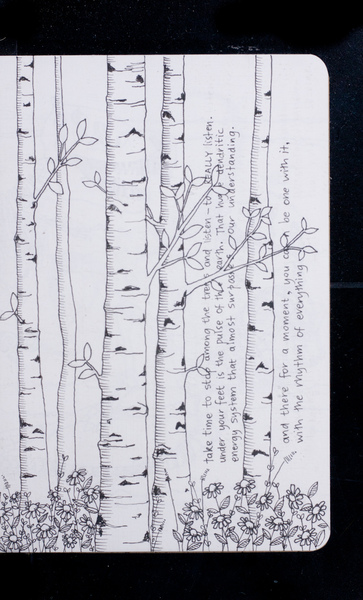 Take time to stop among the trees and listen - to REALLY listen.
under your feet is the pulse of the earth. That has dendritic
energy system that almost surpasses our understanding.
and there for a moment, you can be one with it,
with the rhythm of everything